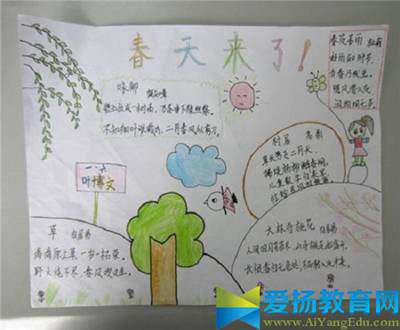 春天来了！
春夜喜雨 杜甫
好雨知时节，
当春乃发生。
随风潜入夜，
润物细无声。
咏柳 贺知章
碧玉妆成一树高，万条垂下绿丝绦。
不知细叶谁裁出，二月春风似剪刀。
村居 高鼎
草长莺飞二月天，
拂堤杨柳醉春烟。
儿童散学归来早，
忙趁东风放纸鸢。
博文
草 白居易
离离原上草，一岁一枯荣。
野火烧不尽，春风吹又生。
大林寺桃花 白居易
人间四月芳菲尽，山寺桃花始盛开。
长恨春归无觅处，不知转入此中来。
爱扬教育网
www.AiYangEdu.com